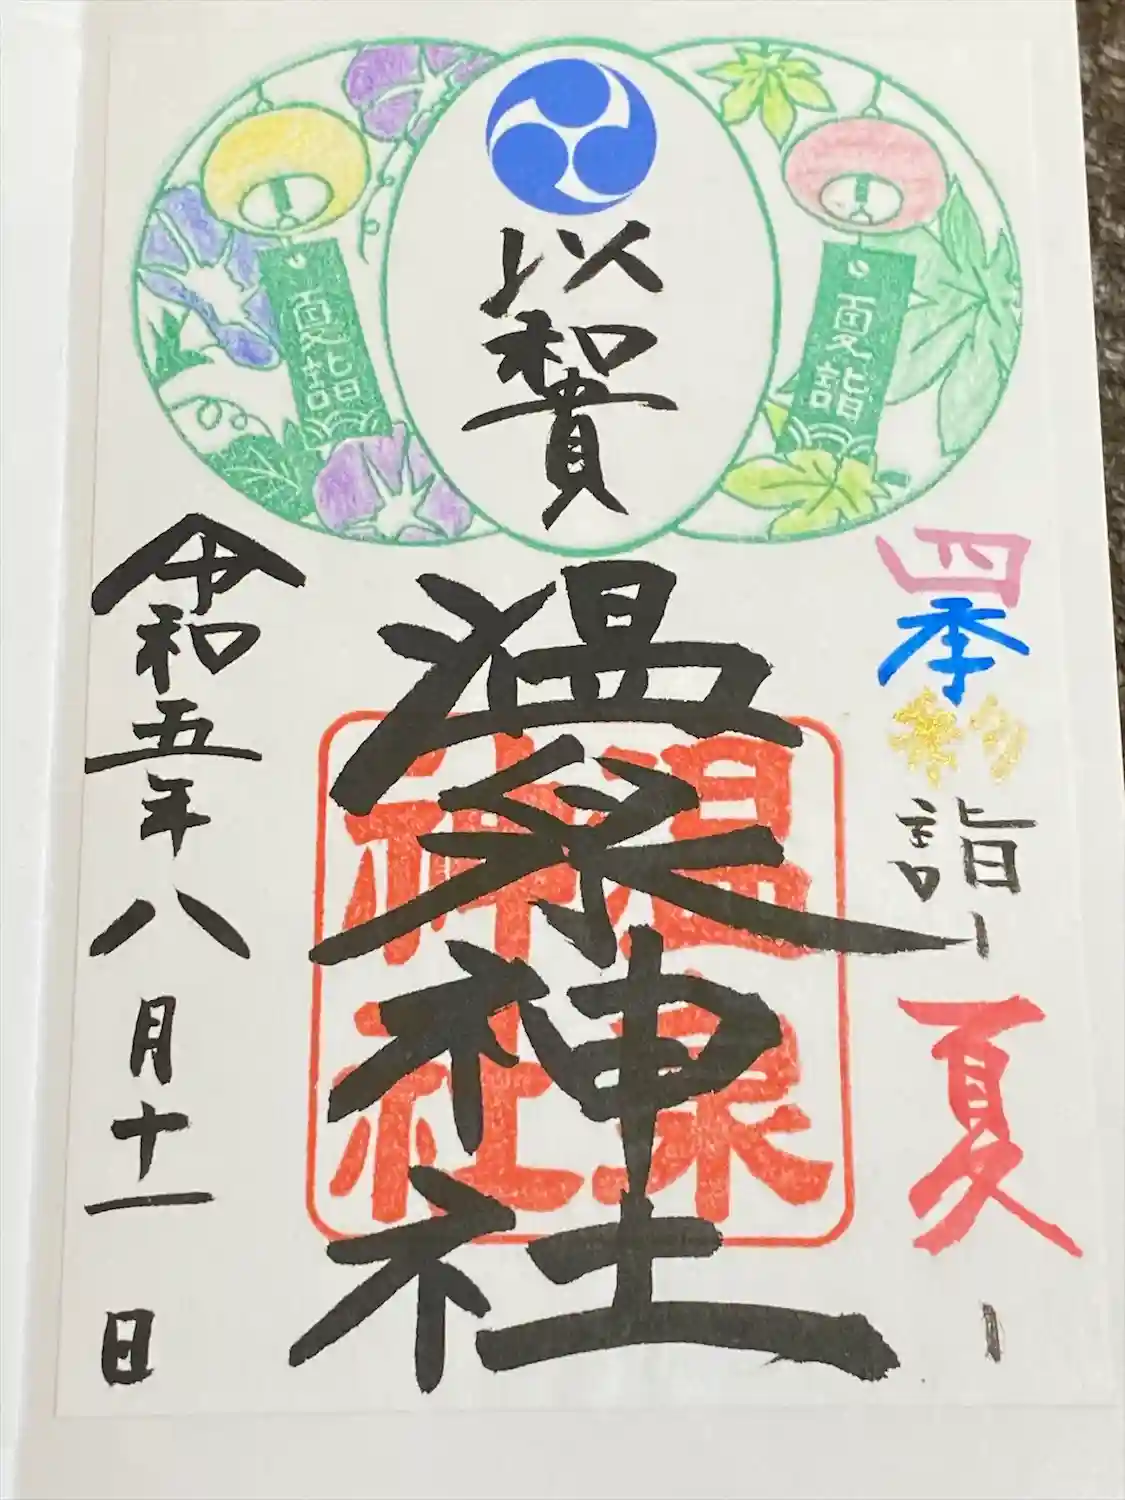 夏詣
以和貴
夏詣
四季彩詣ー夏ー
温泉神社
温泉
神社
令和五年八月十一日